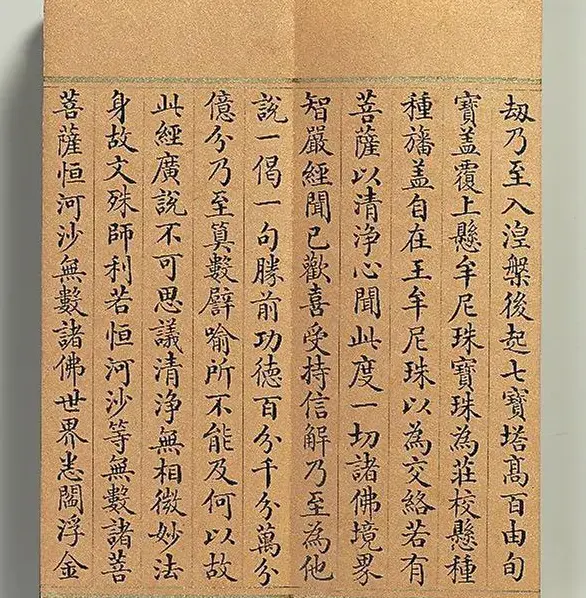 劫乃至入涅槃後起七寶塔髙百由旬
寶盖覆上懸牟尼珠寶珠為莊校懸種
種旛盖自在王牟尼珠以為交絡若有
菩薩以清淨心聞此度一切諸佛境界
智嚴經聞已歡喜受持信解乃至為他
說一偈一句勝前功德百分千分萬分
億分乃至筭數譬喻所不能及何以故
此經廣說不可思議清淨無相微妙法
身故文殊師利若恒河沙等無數諸菩
菩薩恒河沙無數諸佛世界悉閻浮金